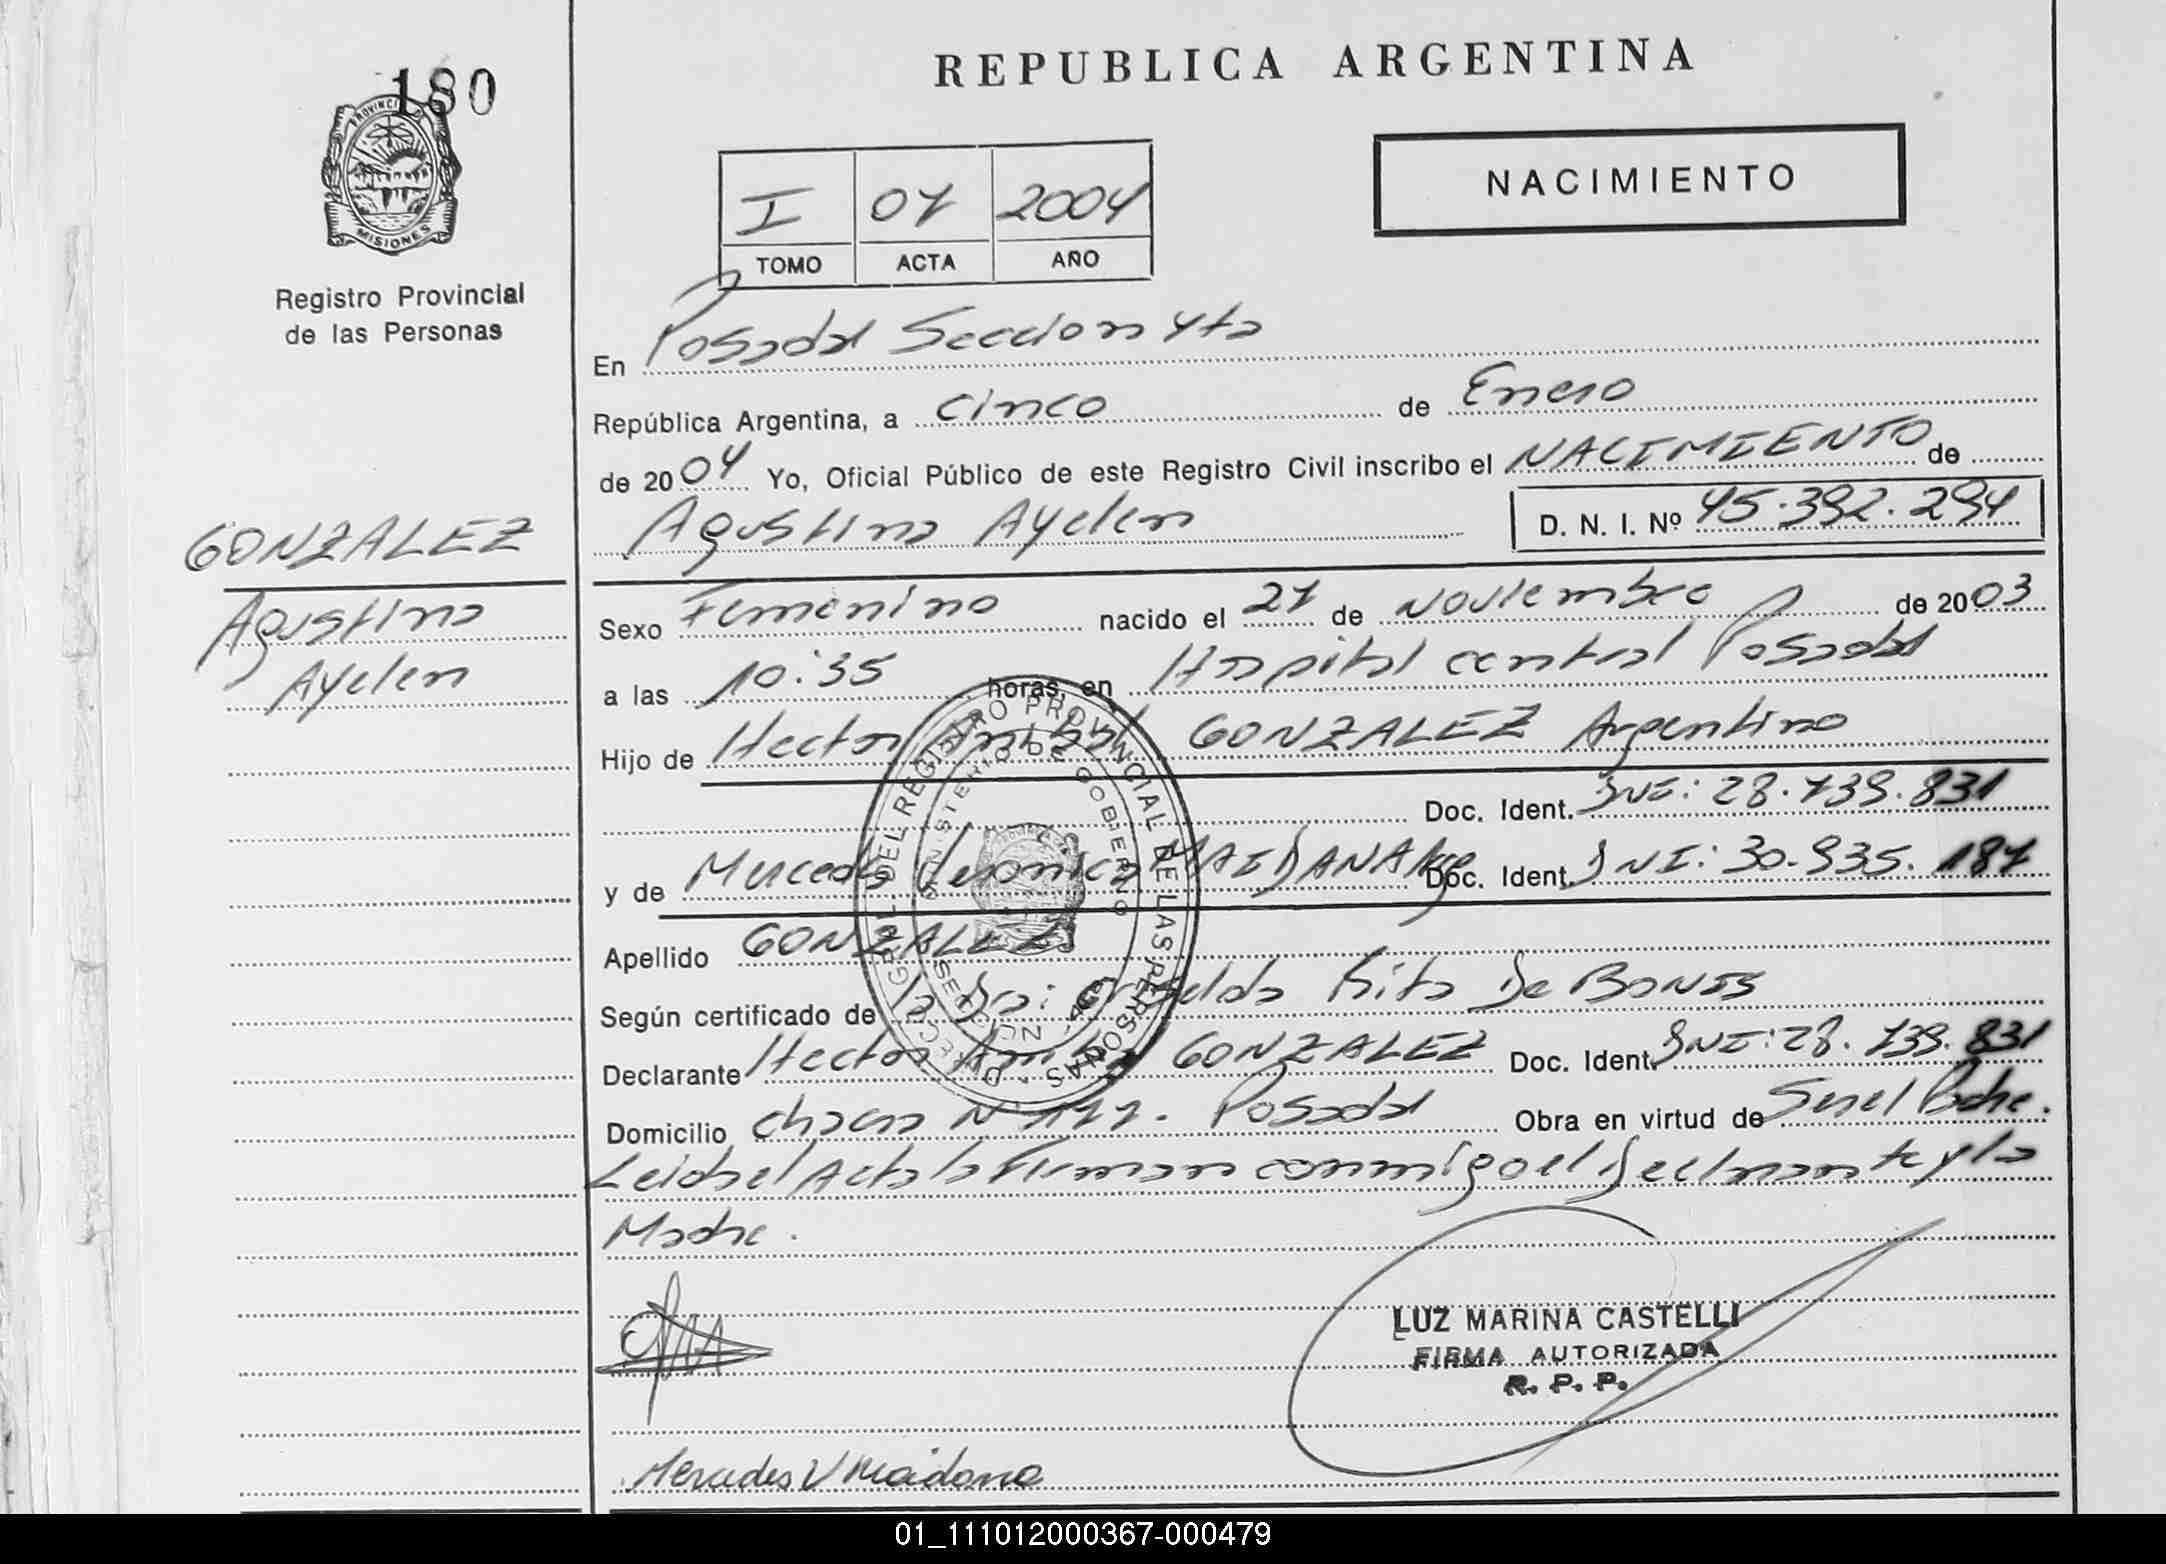 180
PROVINCIA DE
MISIONES
Registro Provincial
de las Personas
REPUBLICA ARGENTINA
I 07 2004
TOMO ACTA AÑO
NACIMIENTO
En Posadas Seccion 4ta
República Argentina, a cinco de Enero
de 2004 Yo, Oficial Público de este Registro Civil inscribo el NACIMIENTO de
Agustina Ayelen D. N. I. Nº 45.392.294
GONZALEZ
Agustina
Ayelen
Sexo Femenino nacido el 27 de Noviembre de 2003
a las 10:35 horas, en Hospital central Posadas
Hijo de Hector Anibal GONZALEZ Argentino
Doc. Ident. DNI: 28.739.831
y de Mercedes Veronica MAIDANA Arg Doc. Ident. DNI: 30.935.187
Apellido GONZALEZ
Según certificado de la Dra: Griselda Rita De BONIS
Declarante Hector Anibal GONZALEZ Doc. Ident. DNI: 28.739.831
Domicilio chacra Nº 177. Posadas Obra en virtud de Ser el Padre.
Leida el Acta la Firman conmigo el Declarante y la
Madre.
DIRECC. GRAL. DEL REGISTRO PROVINCIAL DE LAS PERSONAS
MINISTERIO DE GOBIERNO
LUZ MARINA CASTELLI
FIRMA AUTORIZADA
R. P. P.
Mercedes V Maidana
01_111012000367-000479